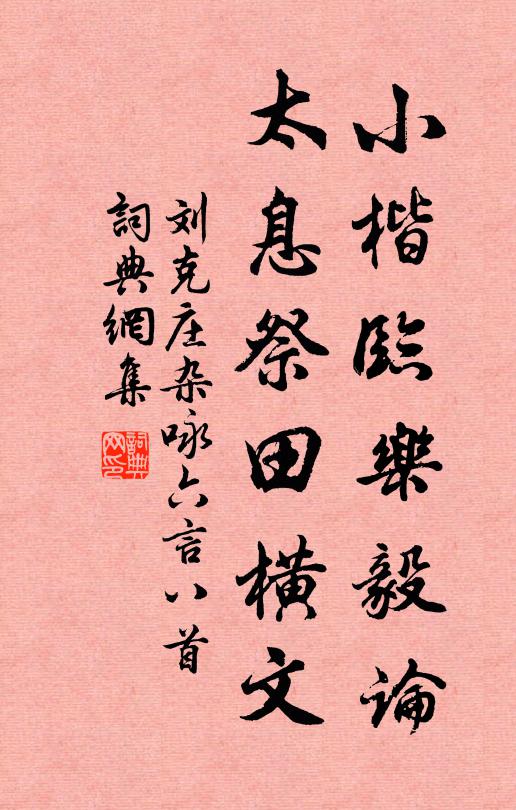 小楷臨樂毅論
太息祭田橫文
刘克庄杂咏六言八首
詞典網集
詞典
网印